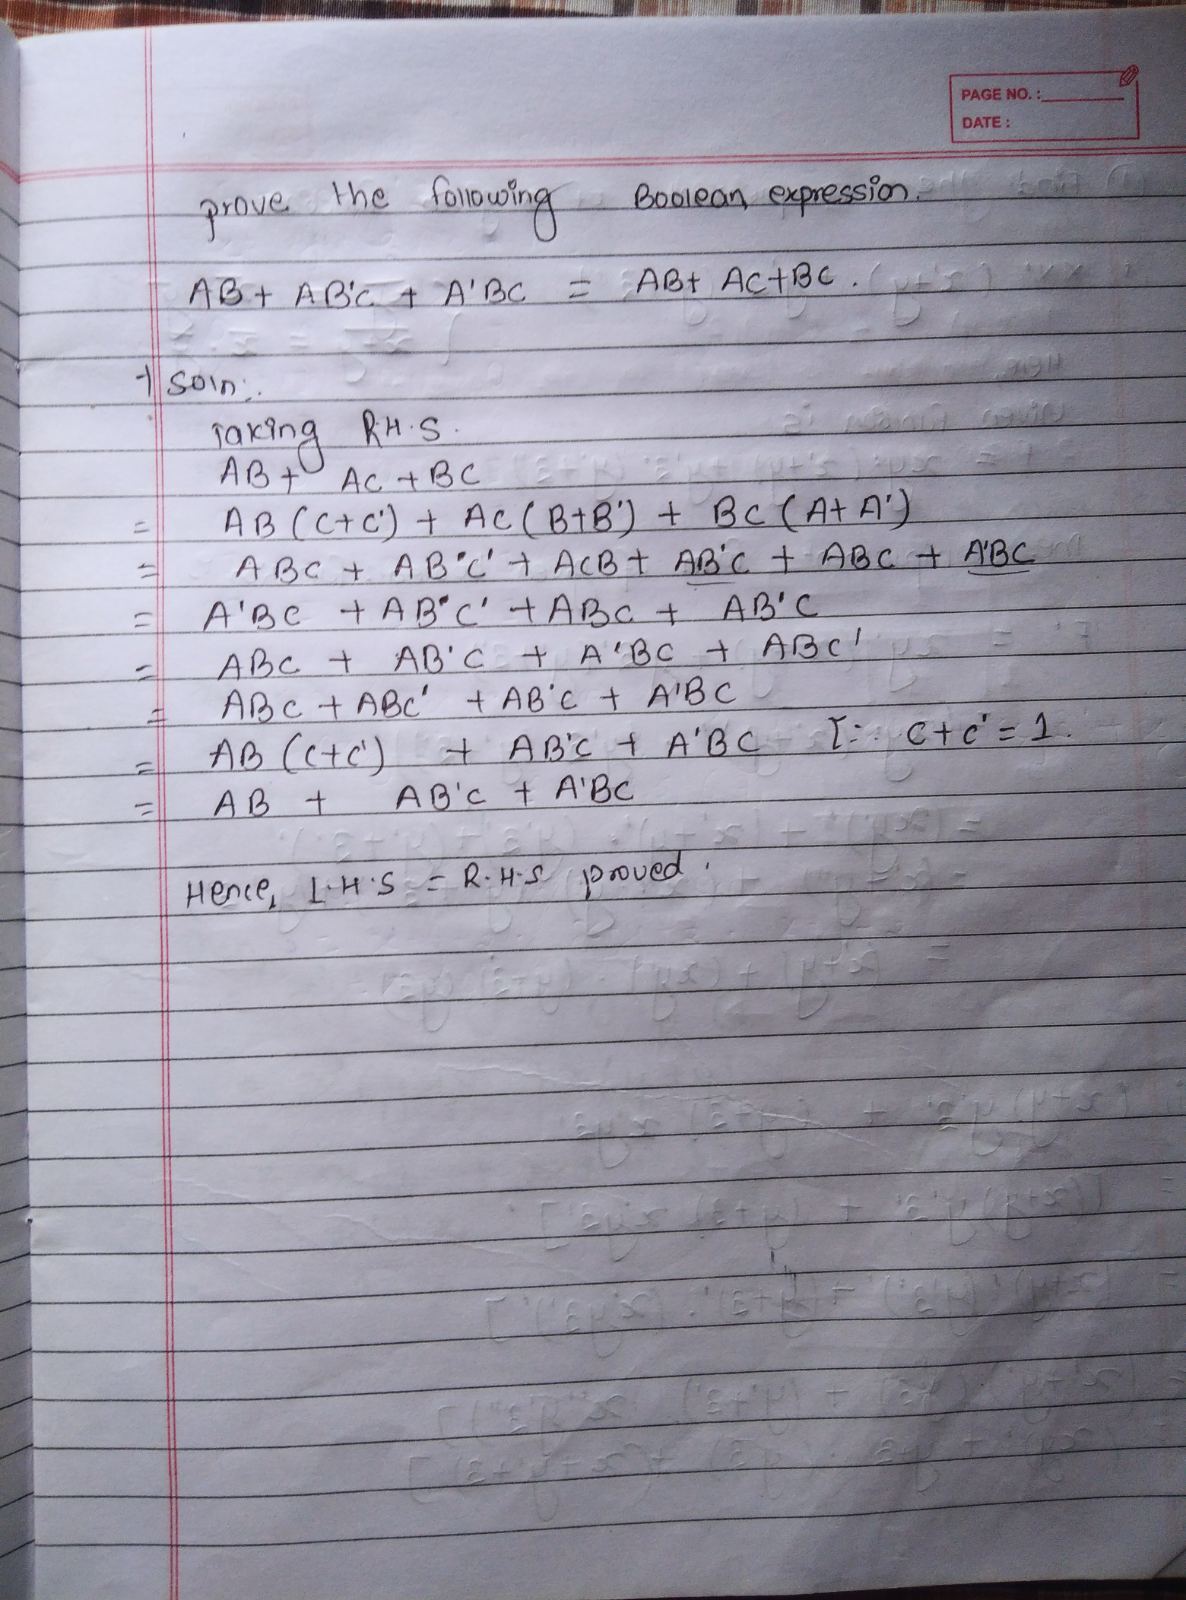 PAGE NO. :
DATE :
prove the following Boolean expression.
AB + AB'C + A'BC = AB + AC + BC .
→ Soln:.
Taking R.H.S.
AB + AC + BC
= AB (C+C') + AC (B+B') + BC (A+A')
= ABC + ABC' + ACB + AB'C + ABC + A'BC
= A'BC + ABC' + ABC + AB'C
= ABC + AB'C + A'BC + ABC'
= ABC + ABC' + AB'C + A'BC
= AB (C+C') + AB'C + A'BC [∵ C+C' = 1.
= AB + AB'C + A'BC
Hence, L.H.S = R.H.S proved .